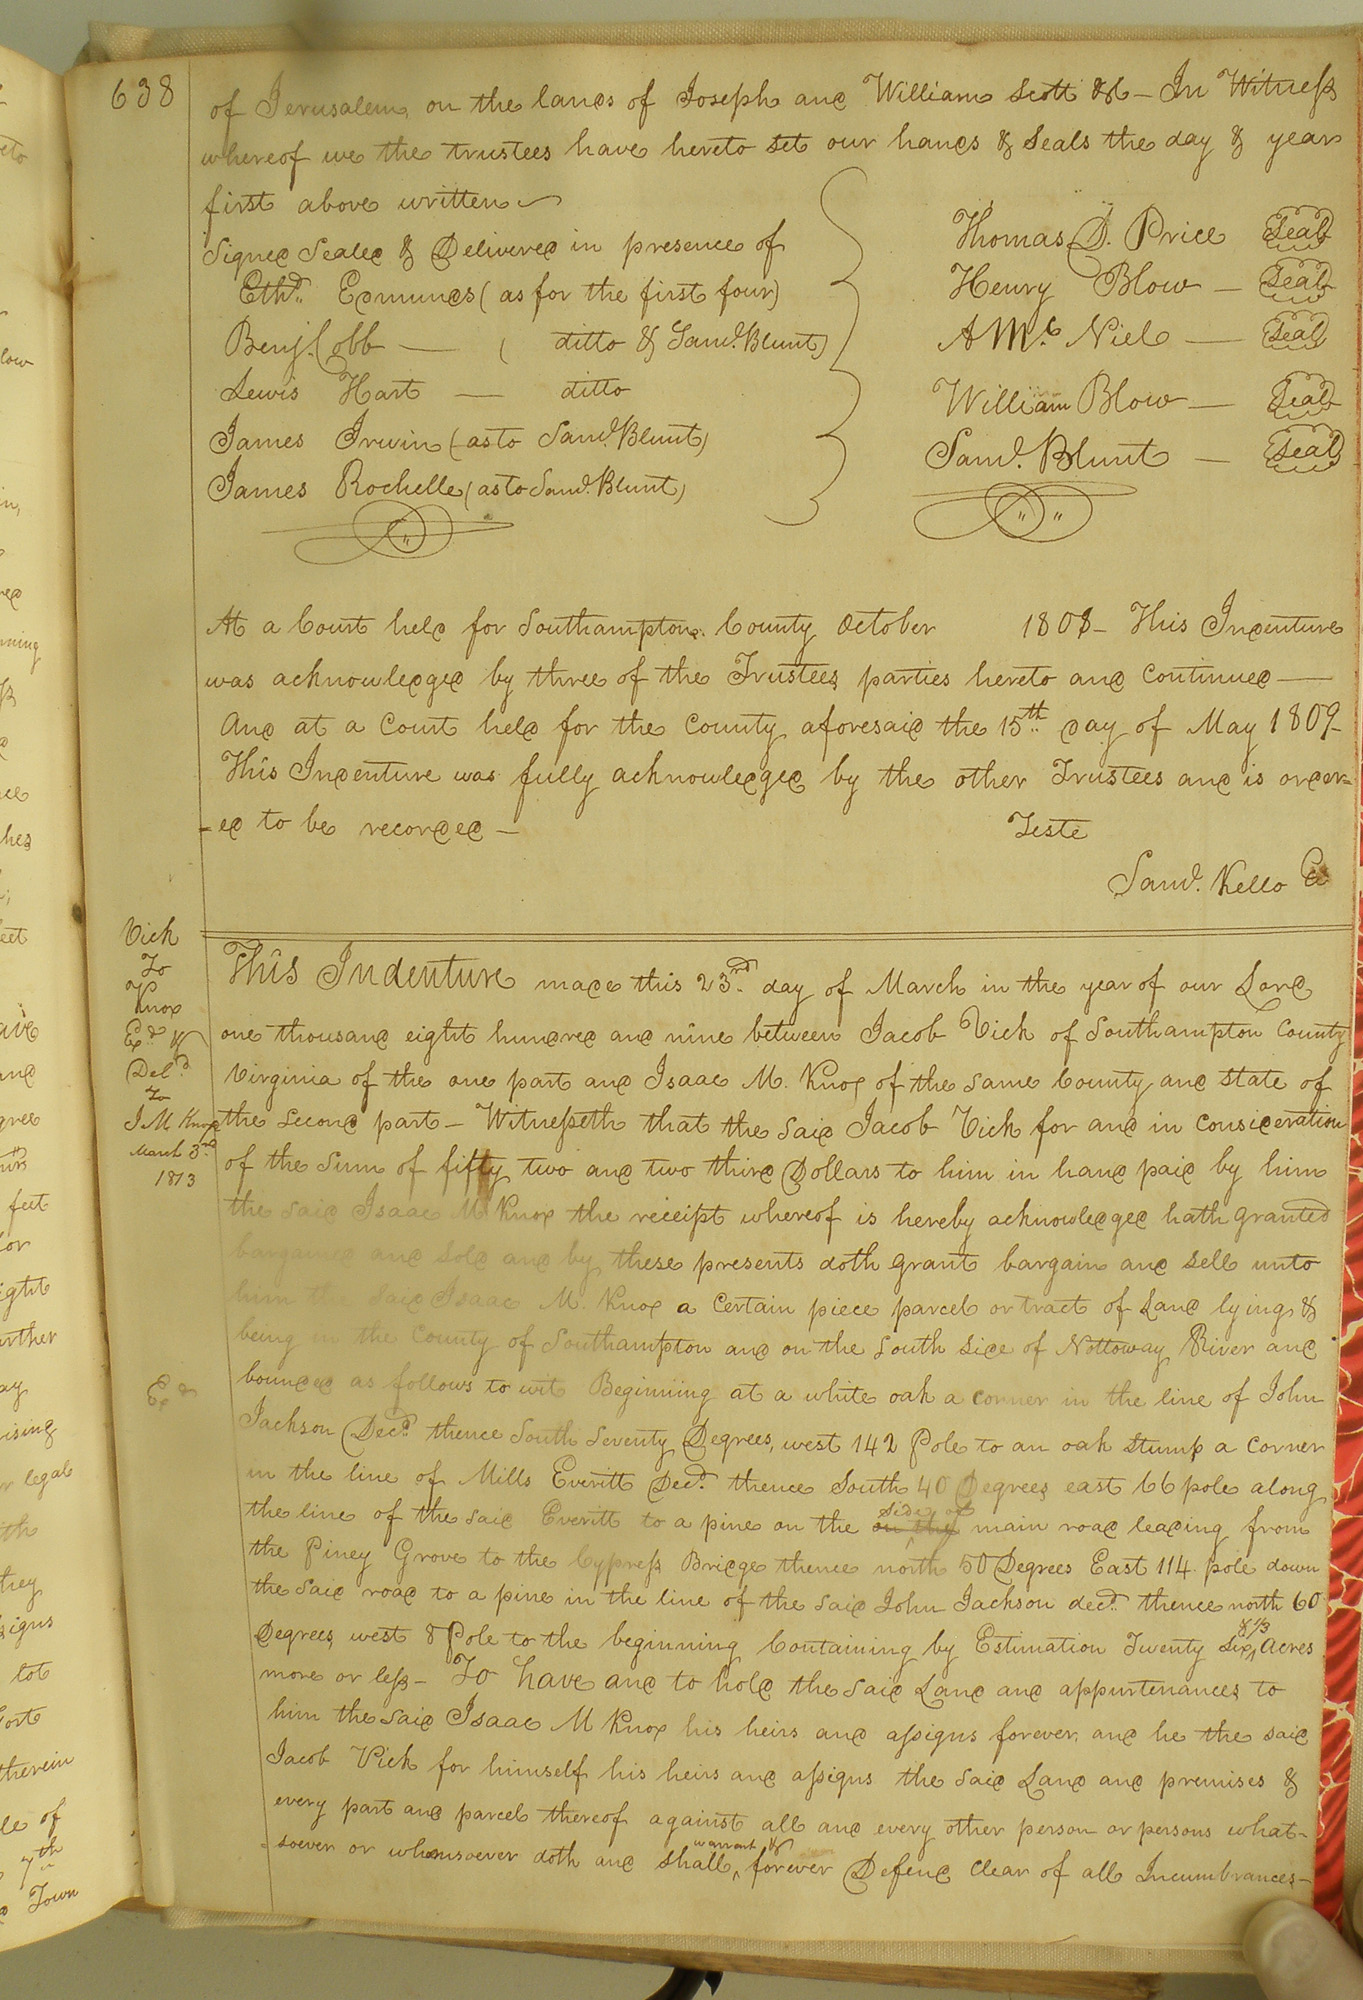 638
of Jerusalem, on the lands of Joseph and William Scott &c — In Witness
whereof we the trustees have hereto set our hands & Seals the day & year
first above written
Signed Sealed & Delivered in presence of
Ethd. Edmunds (as for the first four)
Benj. Cobb — ( ditto & Saml. Blunt)
Lewis Hart — ditto
James Irwin (as to Saml. Blunt)
James Rochelle (as to Saml. Blunt)
Thomas D. Price Seal
Henry Blow — Seal
A Mc. Niel — Seal
William Blow — Seal
Saml. Blunt — Seal
At a Court held for Southampton County October 1808 — This Indenture
was acknowledged by three of the Trustees parties hereto and continued —
And at a Court held for the County aforesaid the 15th. day of May 1809 —
This Indenture was fully acknowledged by the other Trustees and is order=
=ed to be recorded — Teste
Saml. Kello
Vick
To
Knox
Exd. &
Deld.
To
I M Knox
March 3rd.
1813
This Indenture made this 23rd. day of March in the year of our Lord
one thousand eight hundred and nine between Jacob Vick of Southampton County
Virginia of the one part and Isaac M. Knox of the same County and state of
the second part — Witnesseth that the said Jacob Vick for and in consideration
of the sum of fifty two and two third Dollars to him in hand paid by him
the said Isaac M Knox the receipt whereof is hereby acknowledged hath granted
bargained and sold and by these presents doth grant bargain and sell unto
him the said Isaac M. Knox a certain piece parcel or tract of Land lying &
being in the County of Southampton and on the South side of Nottoway River and
bounded as follows to wit Beginning at a white oak a corner in the line of John
Exd
Jackson Decd. thence South Seventy Degrees, west 142 Pole to an oak stump a corner
in the line of Mills Everitt Decd. thence South 40 Degrees east 66 pole along
the line of the said Everitt to a pine on the on the side of main road leading from
the Piney Grove to the Cypress Bridge thence north 50 Degrees East 114 pole down
the said road to a pine in the line of the said John Jackson decd. thence north 60
Degrees west 8 Pole to the beginning Containing by Estimation Twenty six & 1/3 Acres
more or less — To have and to hold the said Land and appurtenances to
him the said Isaac M Knox his heirs and assigns forever, and he the said
Jacob Vick for himself his heirs and assigns the said Land and premises &
every part and parcel thereof against all and every other person or persons what-
soever or whomsoever doth and shall warrant & forever Defend clear of all Incumbrances —